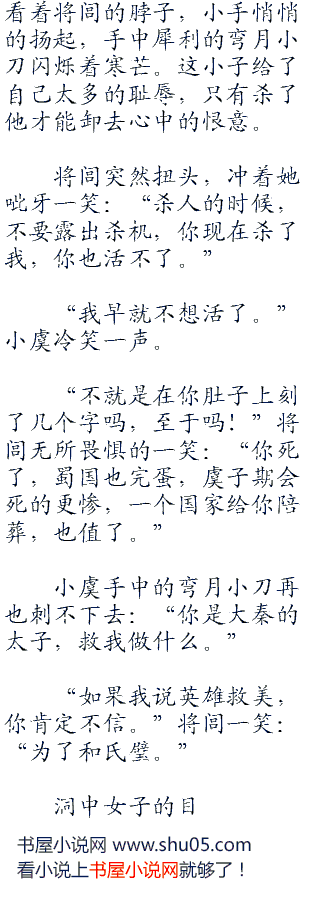 看着将闾的脖子，小手悄悄
的扬起，手中犀利的弯月小
刀闪烁着寒芒。这小子给了
自己太多的耻辱，只有杀了
他才能卸去心中的恨意。
将闾突然扭头，冲着她
呲牙一笑：“杀人的时候，
不要露出杀机，你现在杀了
我，你也活不了。”
“我早就不想活了。”
小虞冷笑一声。
“不就是在你肚子上刻
了几个字吗，至于吗！”将
闾无所畏惧的一笑：“你死
了，蜀国也完蛋，虞子期会
死的更惨，一个国家给你陪
葬，也值了。”
小虞手中的弯月小刀再
也刺不下去：“你是大秦的
太子，救我做什么。”
“如果我说英雄救美，
你肯定不信。”将闾一笑：
“为了和氏璧。”
洞中女子的目
书屋小说网 www.shu05.com
看小说上书屋小说网就够了！